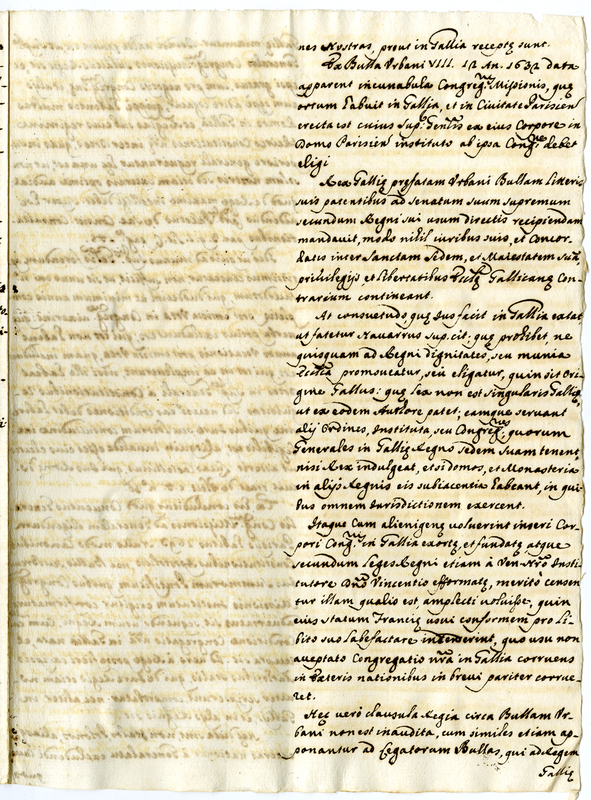 nes Nostras, prout in Gallia receptę sunt.
Ex Bulla Urbani VIII. 12 An. 1632 data
apparent incunabula Congreg.nis Missionis, quę
ortum habuit in Gallia, et in Civitate Parisien
erecta est cuius Sup.r Gen.lis ex eius Corpore in
Domo Parisien instituto ab ipsa Cong.ne debet
eligi
Rex Gallię pręfatam Urbani Bullam Litteris
suis patentibus ad Senatum suum supremum
secundum Regni sui usum directis recipiendam
mandavit, modo nihil iuribus suis, et Concor-
datis inter Sanctam Sedem, et Maiestatem suã,
privilegijs et libertatibus Eccłię Gallicanę Con-
trarium contineant.
At consuetudo, quę Ius facit in Gallia extat,
ut fatetur Navarrus sup. cit: quę prohibet, ne
quisquam ad Regni dignitates, seu munia
Eccłia promoveatur, seu eligatur, quin sit Ori-
gine Gallus: quę Lex non est singularis Gallię,
ut ex eodem Authore patet, eamque servant
alij Ordines, Instituta, seu Congreg.nes, quorum
Generales in Gallię Regno Sedem suam tenent,
nisi Rex indulgeat, etsi domos, et Monasteria
in alijs Regnis eis subiacentia habeant, in qui-
bus omnem Iurisdictionem exercent.
Itaque Cum alienigenę voluerint inseri Cor-
pori Cong.nis in Gallia exortę, et fundatę atque
secundum Leges Regni etiam à Ven. Nr̃o Insti-
tutore Dnõ Vincentio efformatę, merito censen
tur illam qualis est, amplecti voluisse, quin
eius statum Francię usui conformem pro li-
bito suo labefactare intenderint, quo usu non
acceptato Congregatio nr̃a in Gallia corruens
in cęteris nationibus in brevi pariter corrue-
ret.
Hęc verò clausula Regia circa Bullam Ur-
bani non est inaudita, cum similes etiam ap-
ponantur ad Legatorum Bullas, qui ad Regem
Gallię